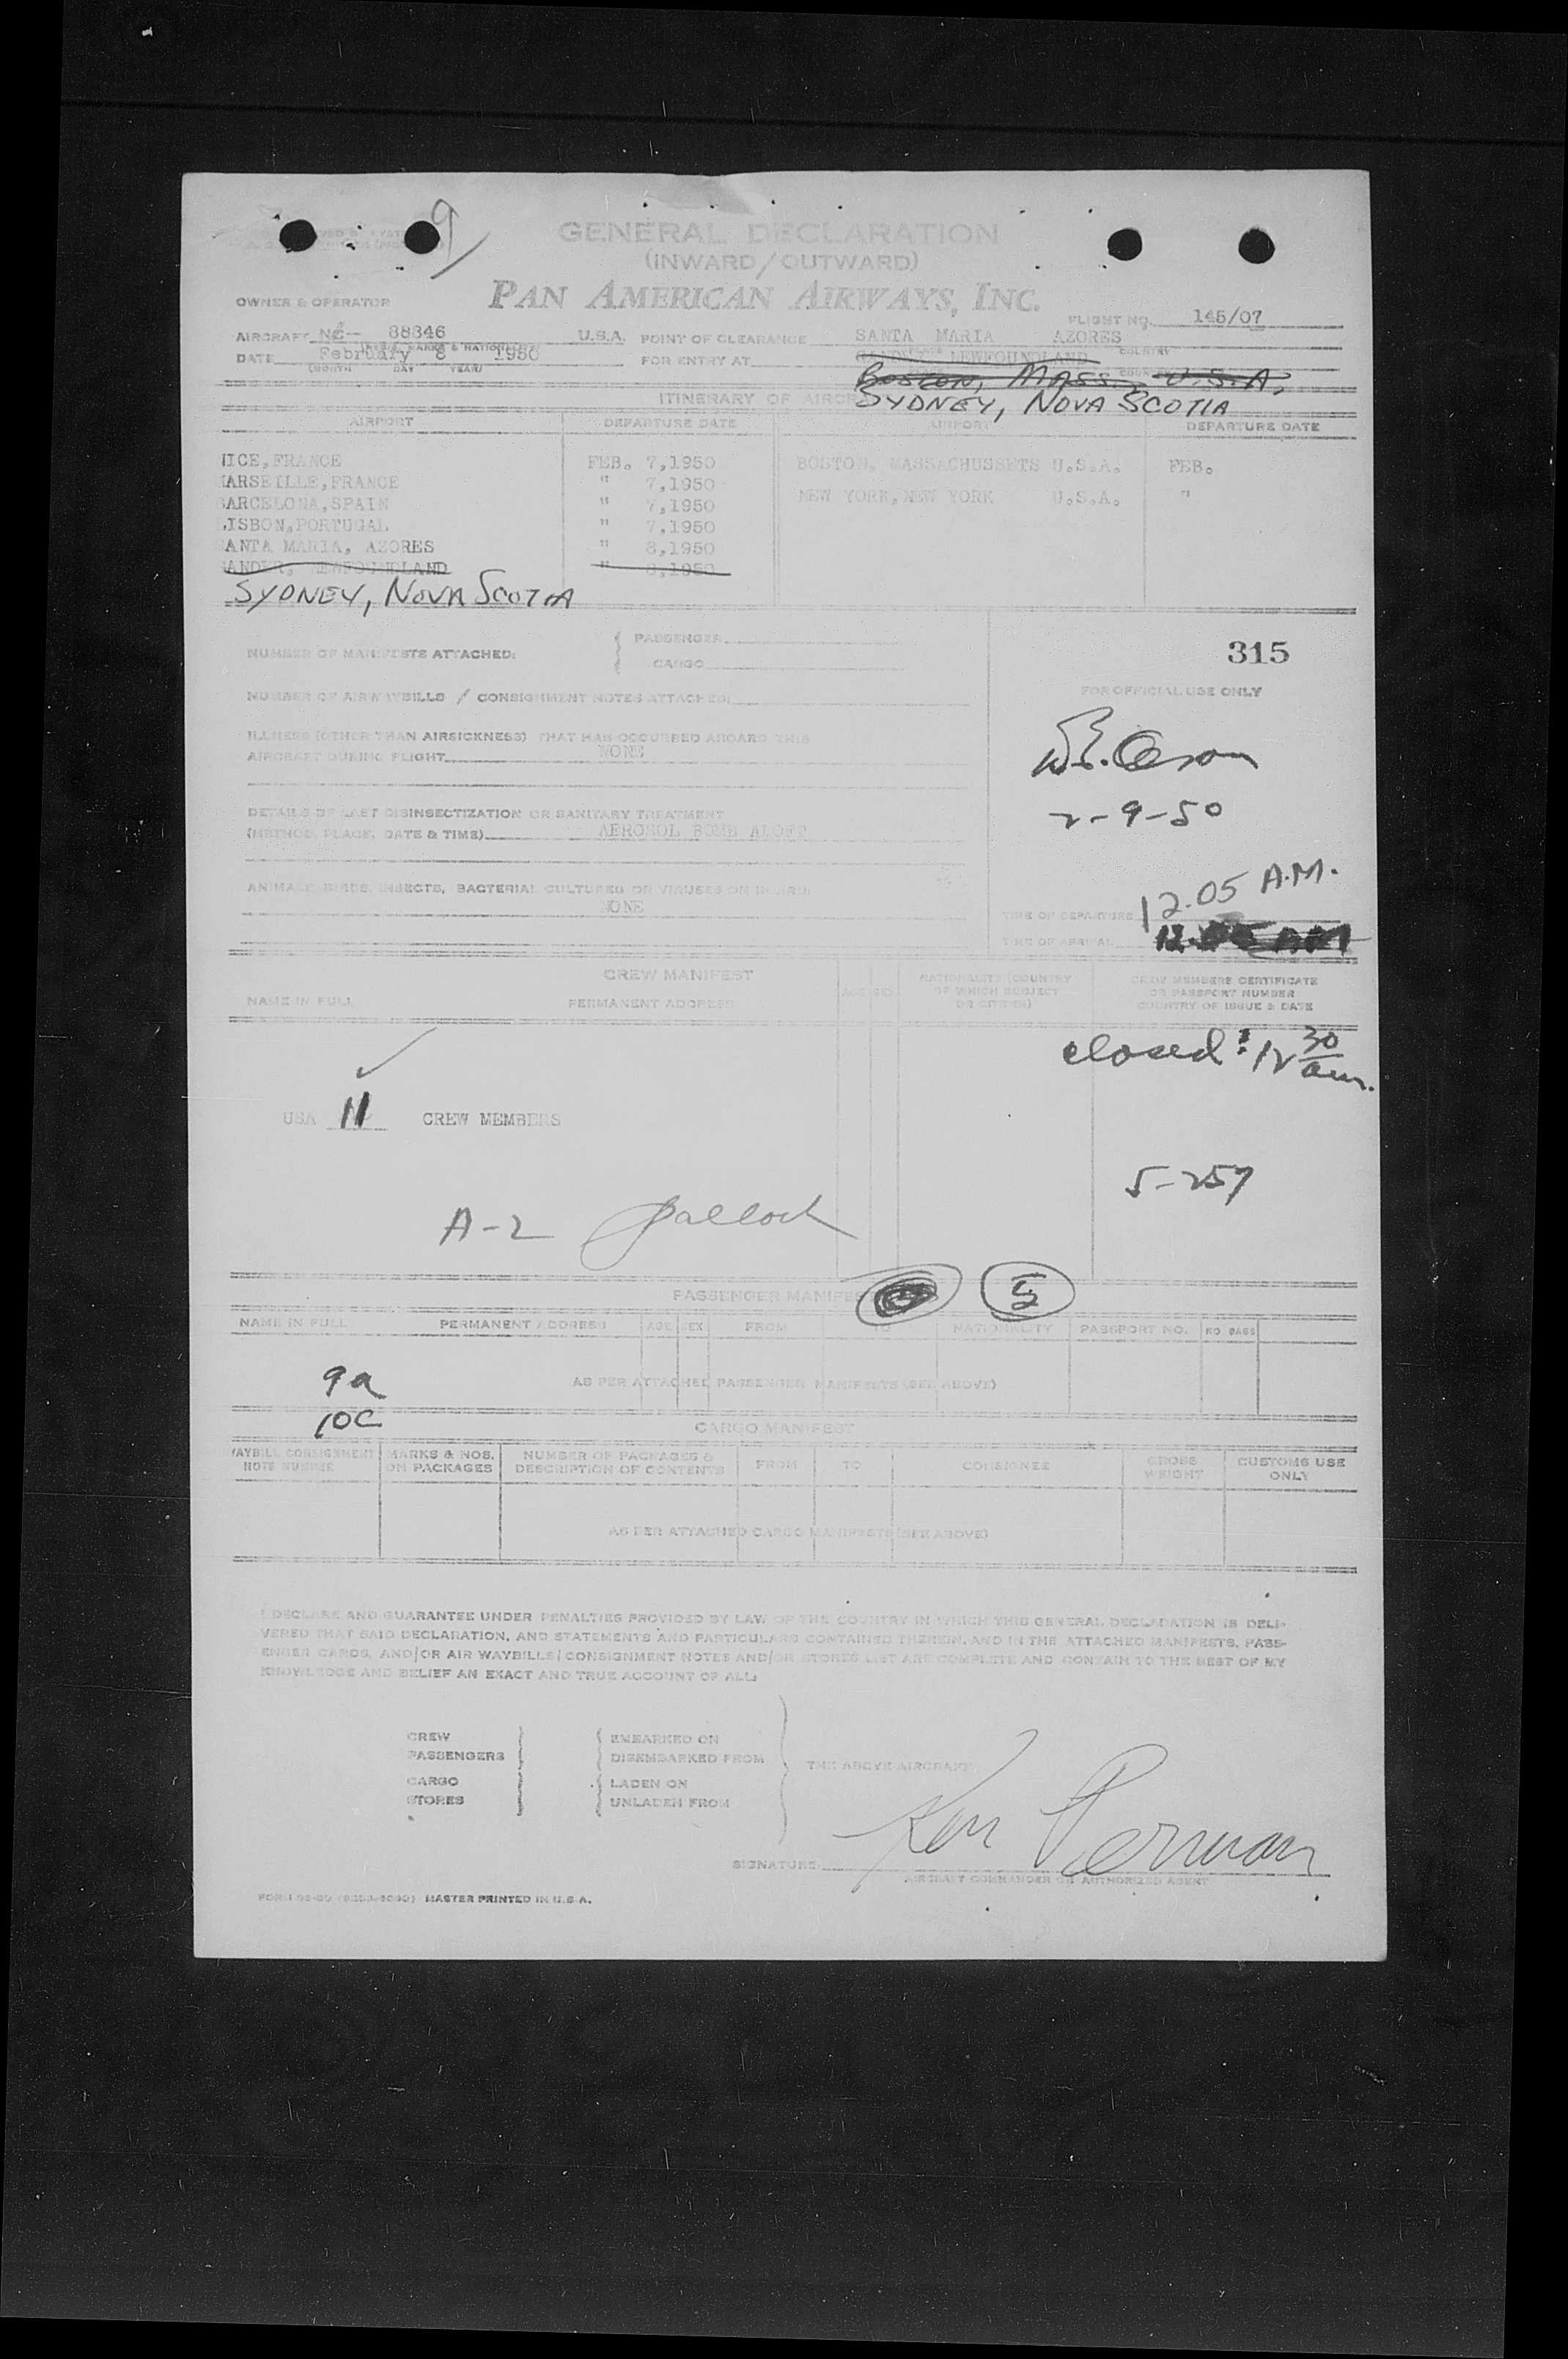 9
GENERAL DECLARATION
(INWARD/OUTWARD)
PAN AMERICAN AIRWAYS, INC.
OWNER & OPERATOR
FLIGHT NO. 145/07
AIRCRAFT NC- 88846 U.S.A. POINT OF CLEARANCE SANTA MARIA AZORES
(REG'N. MARKS & NATIONALITY) PLACE COUNTRY
DATE February 8 1950 FOR ENTRY AT GANDER NEWFOUNDLAND
(MONTH DAY YEAR)
BOSTON, MASS., U.S.A.
ITINERARY OF AIRCRAFT SYDNEY, NOVA SCOTIA
AIRPORT DEPARTURE DATE AIRPORT DEPARTURE DATE
NICE,FRANCE FEB. 7,1950 BOSTON, MASSACHUSSETS U.S.A. FEB.
MARSEILLE,FRANCE " 7,1950
BARCELONA,SPAIN " 7,1950 NEW YORK,NEW YORK U.S.A. "
LISBON,PORTUGAL " 7,1950
SANTA MARIA, AZORES " 8,1950
GANDER, NEWFOUNDLAND " 8,1950
SYDNEY, NOVA SCOTIA
NUMBER OF MANIFESTS ATTACHED: { PASSENGER
CARGO
315
NUMBER OF AIRWAYBILLS / CONSIGNMENT NOTES ATTACHED:
FOR OFFICIAL USE ONLY
ILLNESS (OTHER THAN AIRSICKNESS) THAT HAS OCCURRED ABOARD THIS
AIRCRAFT DURING FLIGHT NONE
2-9-50
DETAILS OF LAST DISINSECTIZATION OR SANITARY TREATMENT
(METHOD, PLACE, DATE & TIME) AEROSOL BOMB ALOFT
ANIMALS, BIRDS, INSECTS, BACTERIAL CULTURES OR VIRUSES ON BOARD:
NONE
TIME OF DEPARTURE 12.05 A.M.
TIME OF ARRIVAL
CREW MANIFEST
NAME IN FULL PERMANENT ADDRESS AGE SEX NATIONALITY (COUNTRY OF WHICH SUBJECT OR CITIZEN) CREW MEMBERS CERTIFICATE OR PASSPORT NUMBER COUNTRY OF ISSUE & DATE
closed: 12 30 am.
USA 11 CREW MEMBERS
5-257
A-2
5
PASSENGER MANIFEST
NAME IN FULL PERMANENT ADDRESS AGE SEX FROM TO NATIONALITY PASSPORT NO. NO BAGS
9a
AS PER ATTACHED PASSENGER MANIFESTS (SEE ABOVE)
10C
CARGO MANIFEST
WAYBILL CONSIGNMENT NOTE NUMBER MARKS & NOS. ON PACKAGES NUMBER OF PACKAGES & DESCRIPTION OF CONTENTS FROM TO CONSIGNEE GROSS WEIGHT CUSTOMS USE ONLY
AS PER ATTACHED CARGO MANIFESTS (SEE ABOVE)
I DECLARE AND GUARANTEE UNDER PENALTIES PROVIDED BY LAW OF THE COUNTRY IN WHICH THIS GENERAL DECLARATION IS DELI-
VERED THAT SAID DECLARATION, AND STATEMENTS AND PARTICULARS CONTAINED THEREIN, AND IN THE ATTACHED MANIFESTS, PASS-
ENGER CARDS, AND/OR AIR WAYBILLS/CONSIGNMENT NOTES AND/OR STORES LIST ARE COMPLETE AND CONTAIN TO THE BEST OF MY
KNOWLEDGE AND BELIEF AN EXACT AND TRUE ACCOUNT OF ALL:
CREW EMBARKED ON
PASSENGERS DISEMBARKED FROM
THE ABOVE AIRCRAFT
CARGO LADEN ON
STORES UNLADEN FROM
SIGNATURE Ken Perman
AIRCRAFT COMMANDER OR AUTHORIZED AGENT
MASTER PRINTED IN U.S.A.